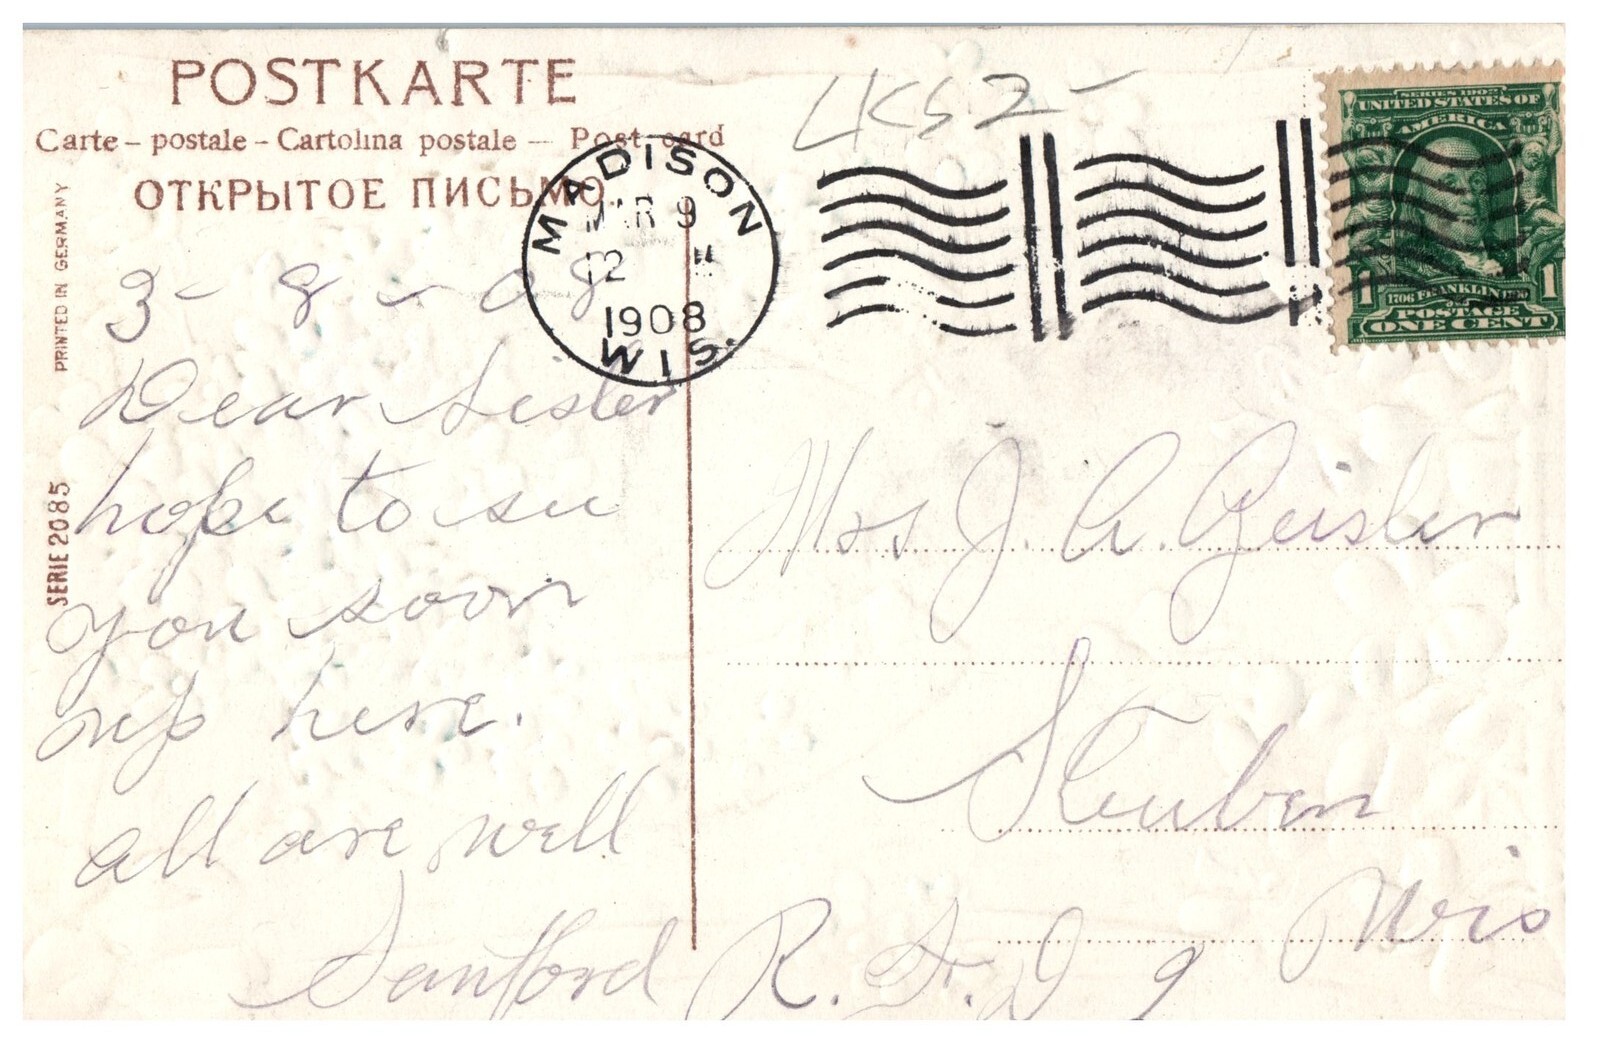 POSTKARTE
Carte – postale – Cartolina postale — Post card
ОТКРЫТОЕ ПИСЬМО.
PRINTED IN GERMANY
SERIE 2085
MADISON
MAR 9
12 M
1908
WIS.
SERIES 1902
UNITED STATES OF
AMERICA
1706 FRANKLIN 1790
POSTAGE
1 ONE CENT 1
3 - 8 - 08
Dear Sister
hope to see
you soon
up here.
all are well
Sanford
Mrs J. A. Geisler
Steuben
Wis
R. F. D 9